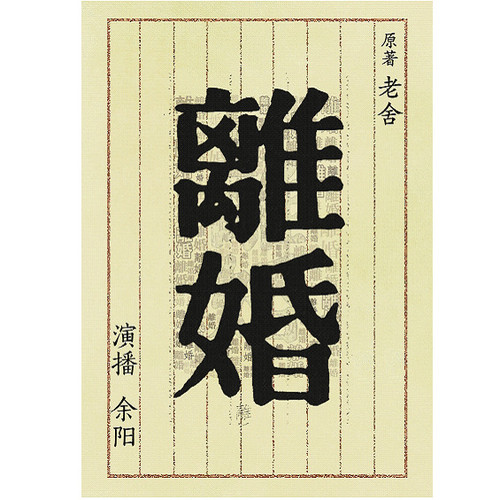 原著 老舍
離婚
演播 余阳